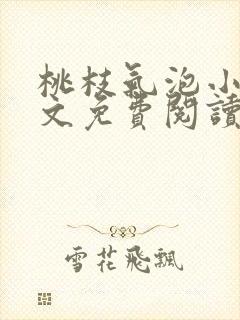 桃枝氣泡小
文免費閱讀
雪花飛飄